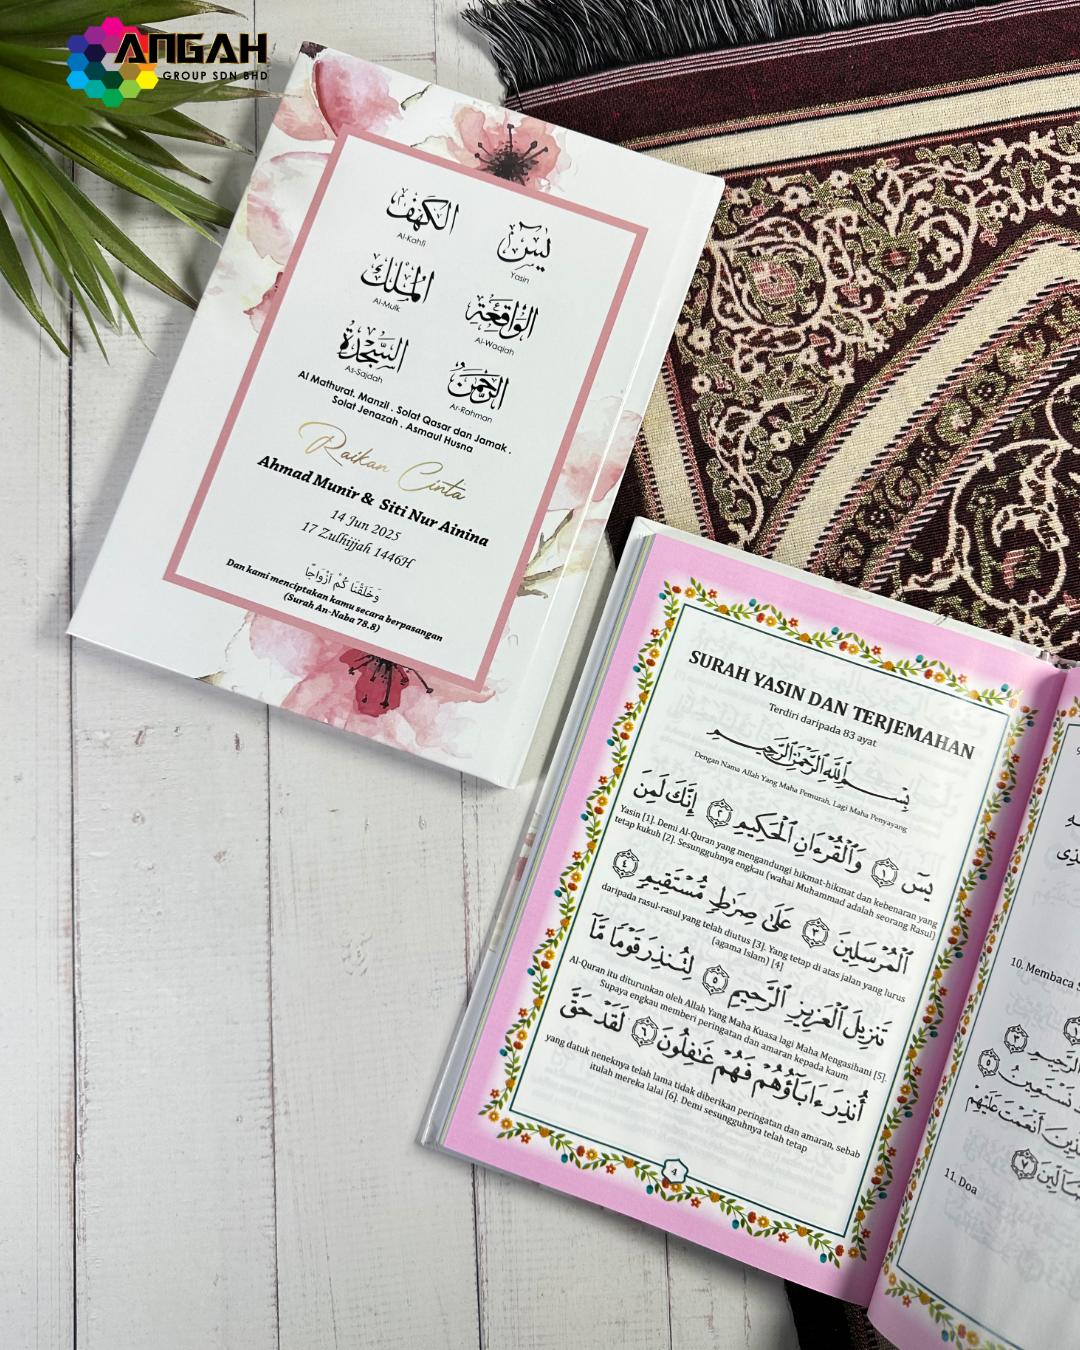 ANGAH
GROUP SDN BHD
الكهف
Al-Kahfi
يس
Yasin
الملك
Al-Mulk
الواقعة
Al-Waqiah
السجدة
As-Sajdah
الرحمن
Ar-Rahman
Al Mathurat. Manzil . Solat Qasar dan Jamak .
Solat Jenazah . Asmaul Husna
Raikan Cinta
Ahmad Munir & Siti Nur Ainina
14 Jun 2025
17 Zulhijjah 1446H
وَخَلَقْنَا كُمْ أَزْوَاجًا
Dan kami menciptakan kamu secara berpasangan
(Surah An-Naba 78.8)
SURAH YASIN DAN TERJEMAHAN
Terdiri daripada 83 ayat
بِسْمِ اللَّهِ الرَّحْمَٰنِ الرَّحِيمِ
Dengan Nama Allah Yang Maha Pemurah, Lagi Maha Penyayang
يسٓ ١ وَٱلْقُرْءَانِ ٱلْحَكِيمِ ٢ إِنَّكَ لَمِنَ
Yasin [1]. Demi Al-Quran yang mengandungi hikmat-hikmat dan kebenaran yang
tetap kukuh [2]. Sesungguhnya engkau (wahai Muhammad adalah seorang Rasul)
ٱلْمُرْسَلِينَ ٣ عَلَىٰ صِرَٰطٍ مُّسْتَقِيمٍ ٤
daripada rasul-rasul yang telah diutus [3]. Yang tetap di atas jalan yang lurus
(agama Islam) [4]
تَنزِيلَ ٱلْعَزِيزِ ٱلرَّحِيمِ ٥ لِتُنذِرَ قَوْمًا مَّآ
Al-Quran itu diturunkan oleh Allah Yang Maha Kuasa lagi Maha Mengasihani [5].
Supaya engkau memberi peringatan dan amaran kepada kaum
أُنذِرَ ءَابَآؤُهُمْ فَهُمْ غَٰفِلُونَ ٦ لَقَدْ حَقَّ
yang datuk neneknya telah lama tidak diberikan peringatan dan amaran, sebab
itulah mereka lalai [6]. Demi sesungguhnya telah tetap
4
10. Membaca
نَسْتَعِينُ ٥
أَنْعَمْتَ عَلَيْهِمْ
٧
11. Doa